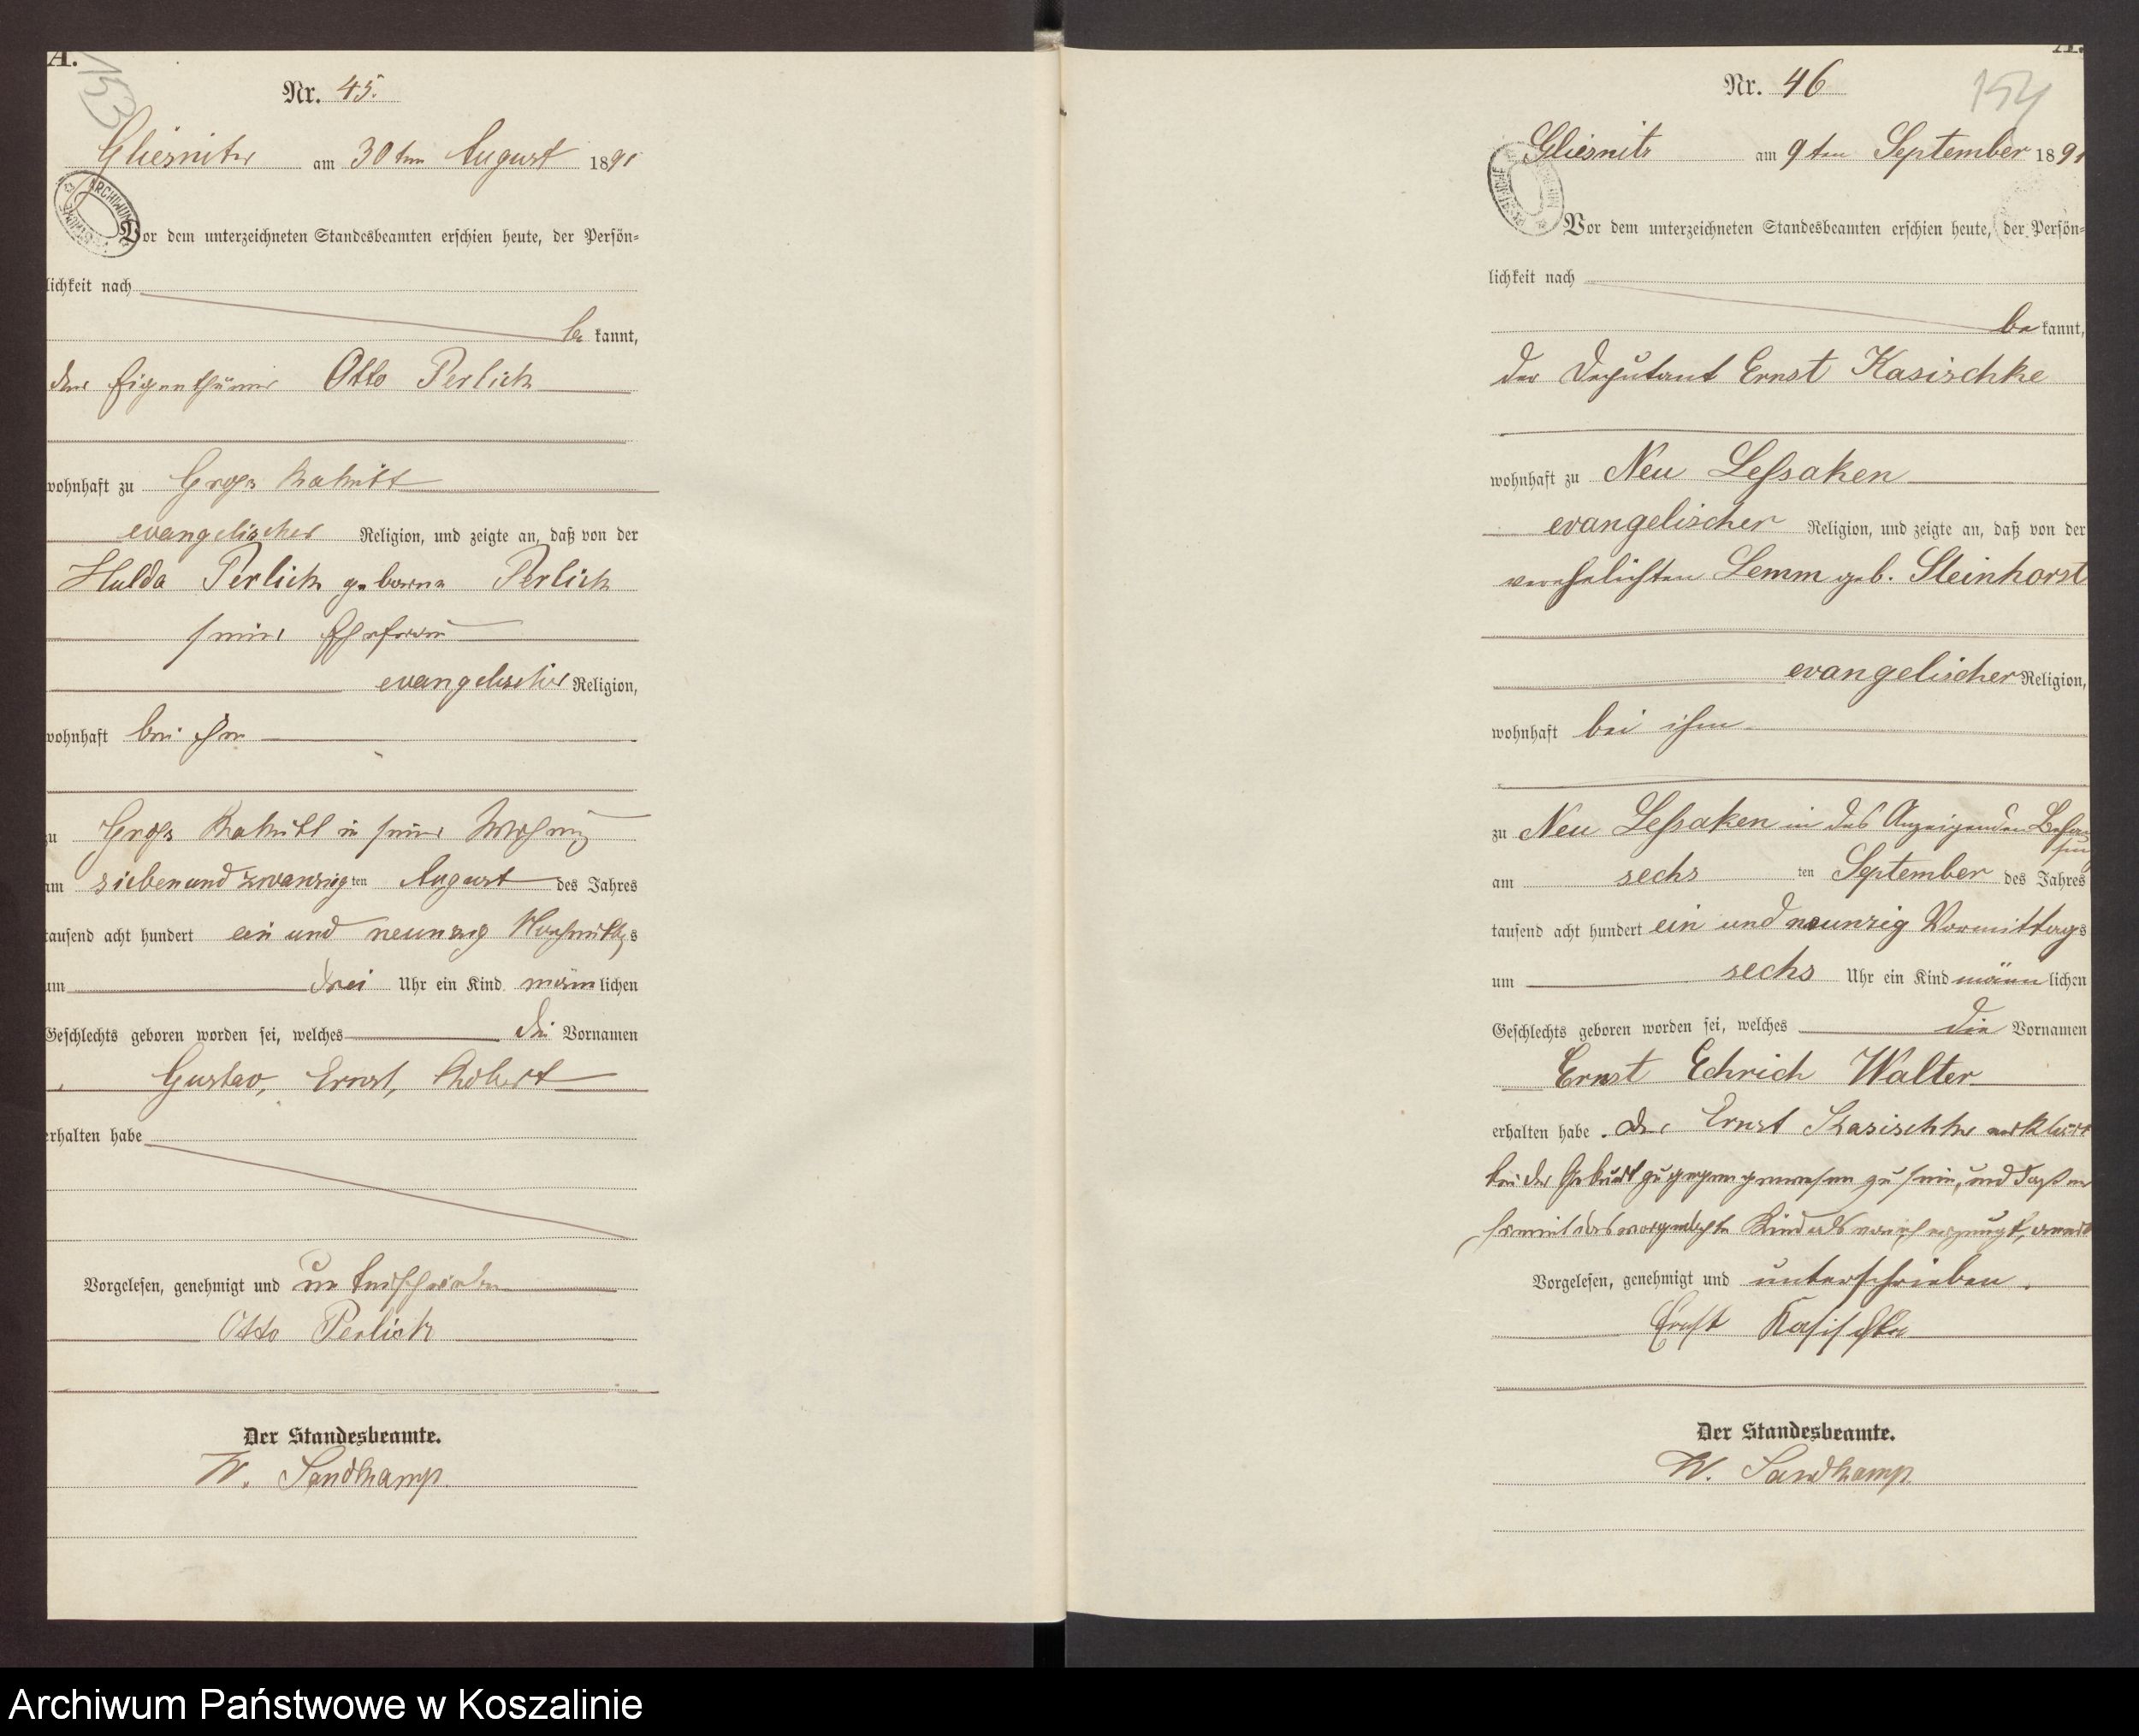 A.
153
Nr. 45.
Gliesnitz am 30ten August 1891
ARCHIWUM
Vor dem unterzeichneten Standesbeamten erschien heute, der Persön=
lichkeit nach
be kannt,
der Eigenthümer Otto Perlick
wohnhaft zu Gross Rakitt
evangelischer Religion, und zeigte an, daß von der
Hulda Perlick geborne Perlick
seiner Ehefrau
evangelischer Religion,
wohnhaft bei ihm
zu Gross Rakitt in seiner Wohnung
am siebenundzwanzig ten August des Jahres
tausend acht hundert ein und neunzig Nachmittags
um drei Uhr ein Kind männlichen
Geschlechts geboren worden sei, welches die Vornamen
Gustav, Ernst, Robert
erhalten habe
Vorgelesen, genehmigt und unterschrieben
Otto Perlick
Der Standesbeamte.
W. Sandkamp.
A.
154
Nr. 46
Gliesnitz am 9ten September 1891
Vor dem unterzeichneten Standesbeamten erschien heute, der Persön=
lichkeit nach
be kannt,
der Deputant Ernst Kasischke
wohnhaft zu Neu Leſsaken
evangelischer Religion, und zeigte an, daß von der
verehelichten Lemm geb. Steinhorst
evangelischer Religion,
wohnhaft bei ihm
zu Neu Leſsaken in des Anzeigenden Behau
sung
am sechs ten September des Jahres
tausend acht hundert ein und neunzig Vormittags
um sechs Uhr ein Kind männlichen
Geschlechts geboren worden sei, welches die Vornamen
Ernst Ehrich Walter
erhalten habe. Der Ernst Kasischke erklärt
bei der Geburt zugegen gewesen zu sein, und daß er
Kindes
Vorgelesen, genehmigt und unterschrieben.
Ernst Kasischke
Der Standesbeamte.
W. Sandkamp.
Archiwum Państwowe w Koszalinie